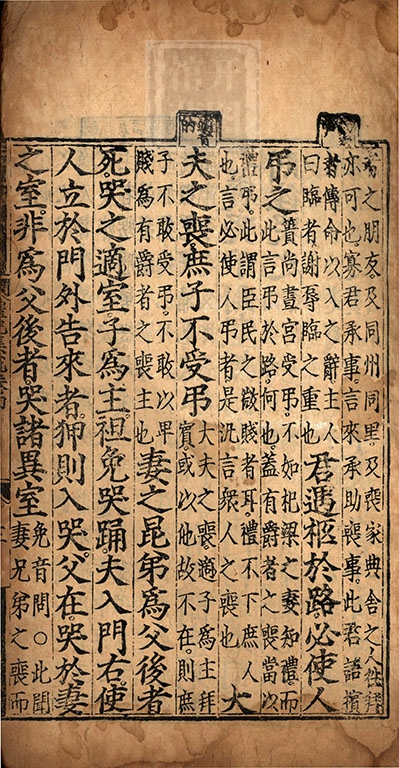 者之朋友及同州同里及喪家典舍之人往拜
亦可也寡君承事言來承助喪事此君語擯
者傳命以入之辭主人
曰臨者謝辱臨之重也
君遇柩於路必使人
弔之
蕢尚畫宮受弔不如杞梁之妻知禮而
此言弔於路何也蓋有爵者之喪當以
禮弔此謂臣民之微賤者耳禮不下庶人
也言必使人弔者是汎言眾人之喪也
大
夫之喪庶子不受弔
大夫之喪適子為主拜
賓或以他故不在則庶
子不敢受弔不敢以卑
賤為有爵者之喪主也
妻之昆弟為父後者
死哭之適室子為主袒免哭踊夫入門右使
人立於門外告來者狎則入哭父在哭於妻
之室非為父後者哭諸異室
免音問○此聞
妻兄弟之喪而